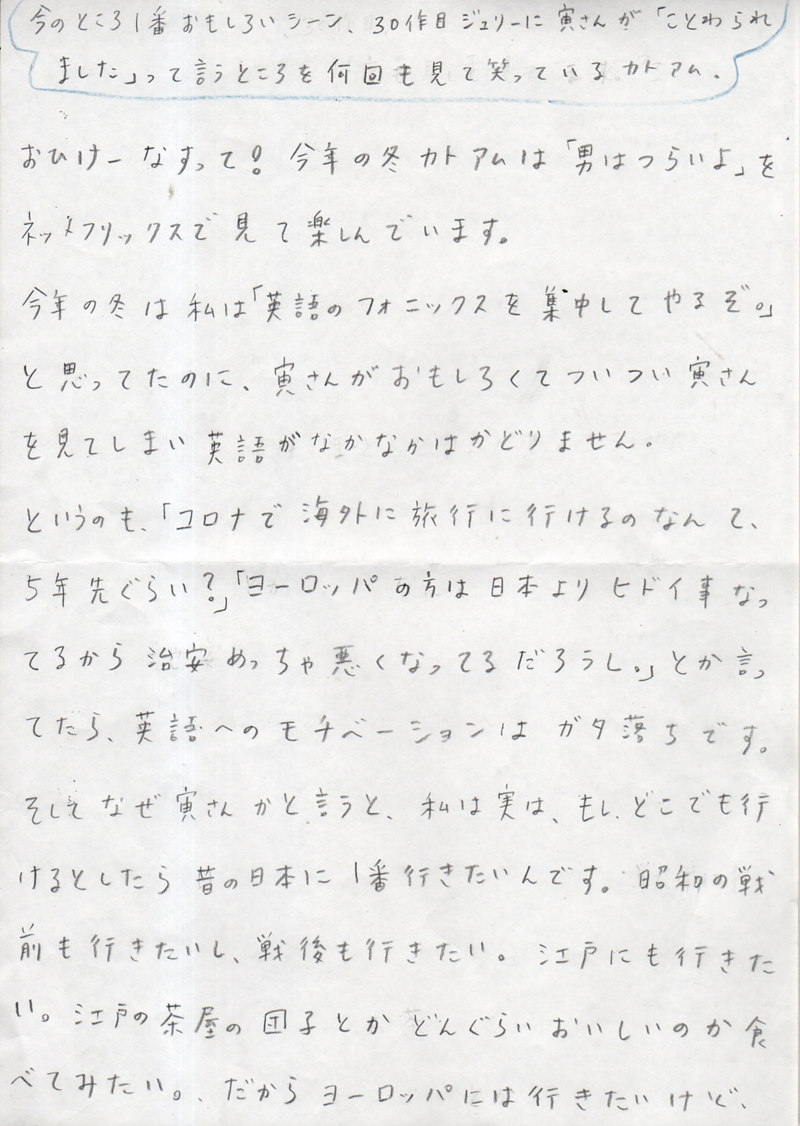 今のところ1番おもしろいシーン、30作目ジュリーに寅さんが「ことわられ
ました」って言うところを何回も見て笑っているカトアム.
おひけーなすって! 今年の冬カトアムは「男はつらいよ」を
ネットフリックスで見て楽しんでいます。
今年の冬は私は「英語のフォニックスを集中してやるぞ。」
と思ってたのに、寅さんがおもしろくてついつい寅さん
を見てしまい英語がなかなかはかどりません。
というのも、「コロナで海外に旅行に行けるのなんて、
5年先ぐらい?」「ヨーロッパの方は日本よりヒドイ事なっ
てるから治安めっちゃ悪くなってるだろうし。」とか言っ
てたら、英語へのモチベーションはガタ落ちです。
そしてなぜ寅さんかと言うと、私は実は、もし、どこでも行
けるとしたら昔の日本に1番行きたいんです。昭和の戦
前も行きたいし、戦後も行きたい。江戸にも行きた
い。江戸の茶屋の団子とかどんぐらいおいしいのか食
べてみたい。、だからヨーロッパには行きたいけど、